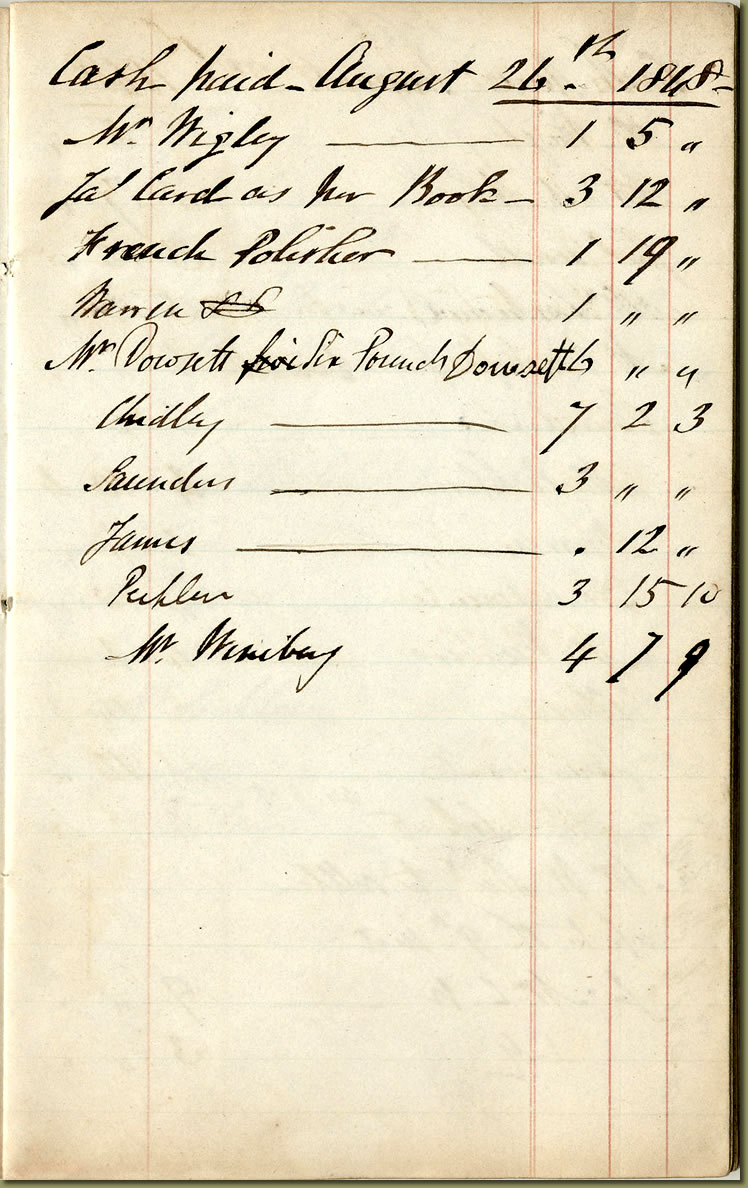 Cash paid - August 26.th 1848 -
Mr. Wigley 1 5 "
Jas Card as per Book - 3 12 "
French Polisher 1 19 "
Warren 1 " "
Mr. Dowsett Six Pounds Dowsett 6 " "
Chidley 7 2 3
Saunders 3 " "
James . 12 "
3 15 10
Mr. 4 7 9